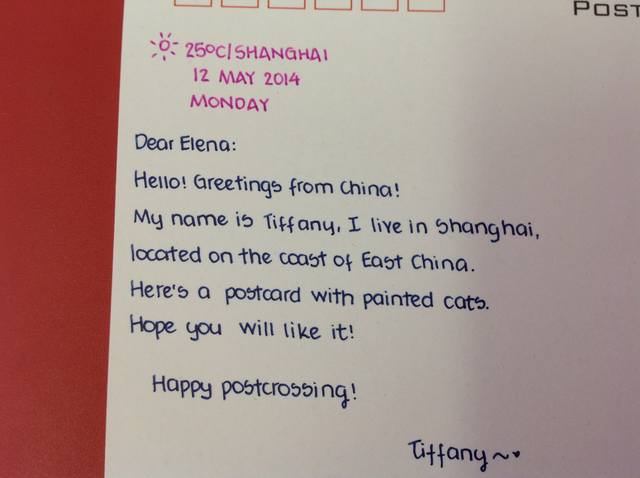 POST
25°C/SHANGHAI
12 MAY 2014
MONDAY
Dear Elena:
Hello! Greetings from China!
My name is Tiffany, I live in Shanghai,
located on the coast of East China.
Here's a postcard with painted cats.
Hope you will like it!
Happy postcrossing!
Tiffany~